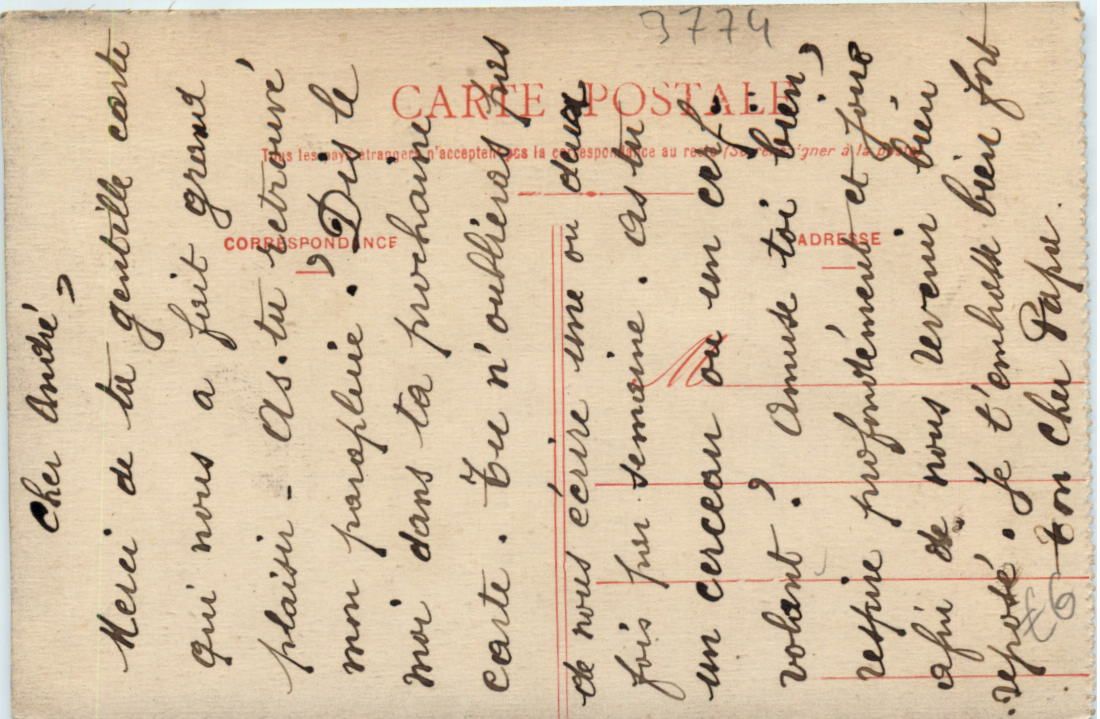 3774
CARTE POSTALE
Tous les pays étrangers n'acceptent pas la correspondance au recto (Se renseigner à la poste)
CORRESPONDANCE
ADRESSE
M
Cher André,
Merci de ta gentille carte
qui nous a fait grand
plaisir - As-tu retrouvé
mon parapluie ? Dis le
moi dans ta prochaine
carte. Tu n'oublieras pas
de nous écrire une ou deux
fois par semaine. As tu
un cerceau ou un cerf,
volant ? Amuse toi bien,
respire profondément et jous
afin de nous revenir bien
reposé. Je t'embrasse bien fort
Ton Cher Papa.
£6